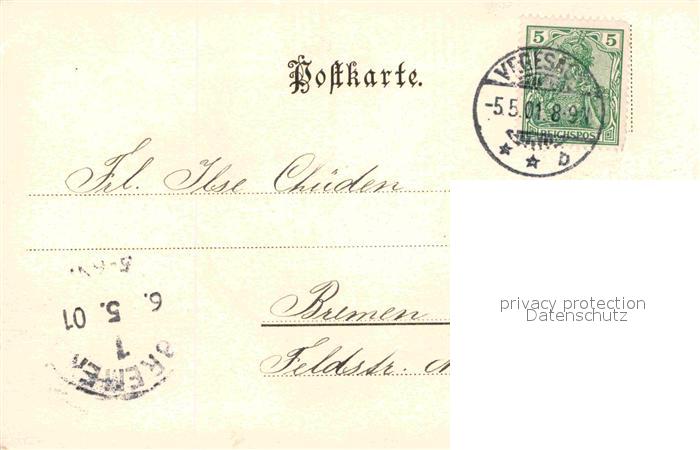 5 5
Postkarte.
REICHSPOST
VEGESACK
-5.5.01.8-9
b
Frl. Ilse Chüden
Bremen
Feldstr.
6. 5. 01
1
BREMEN
privacy protection
Datenschutz